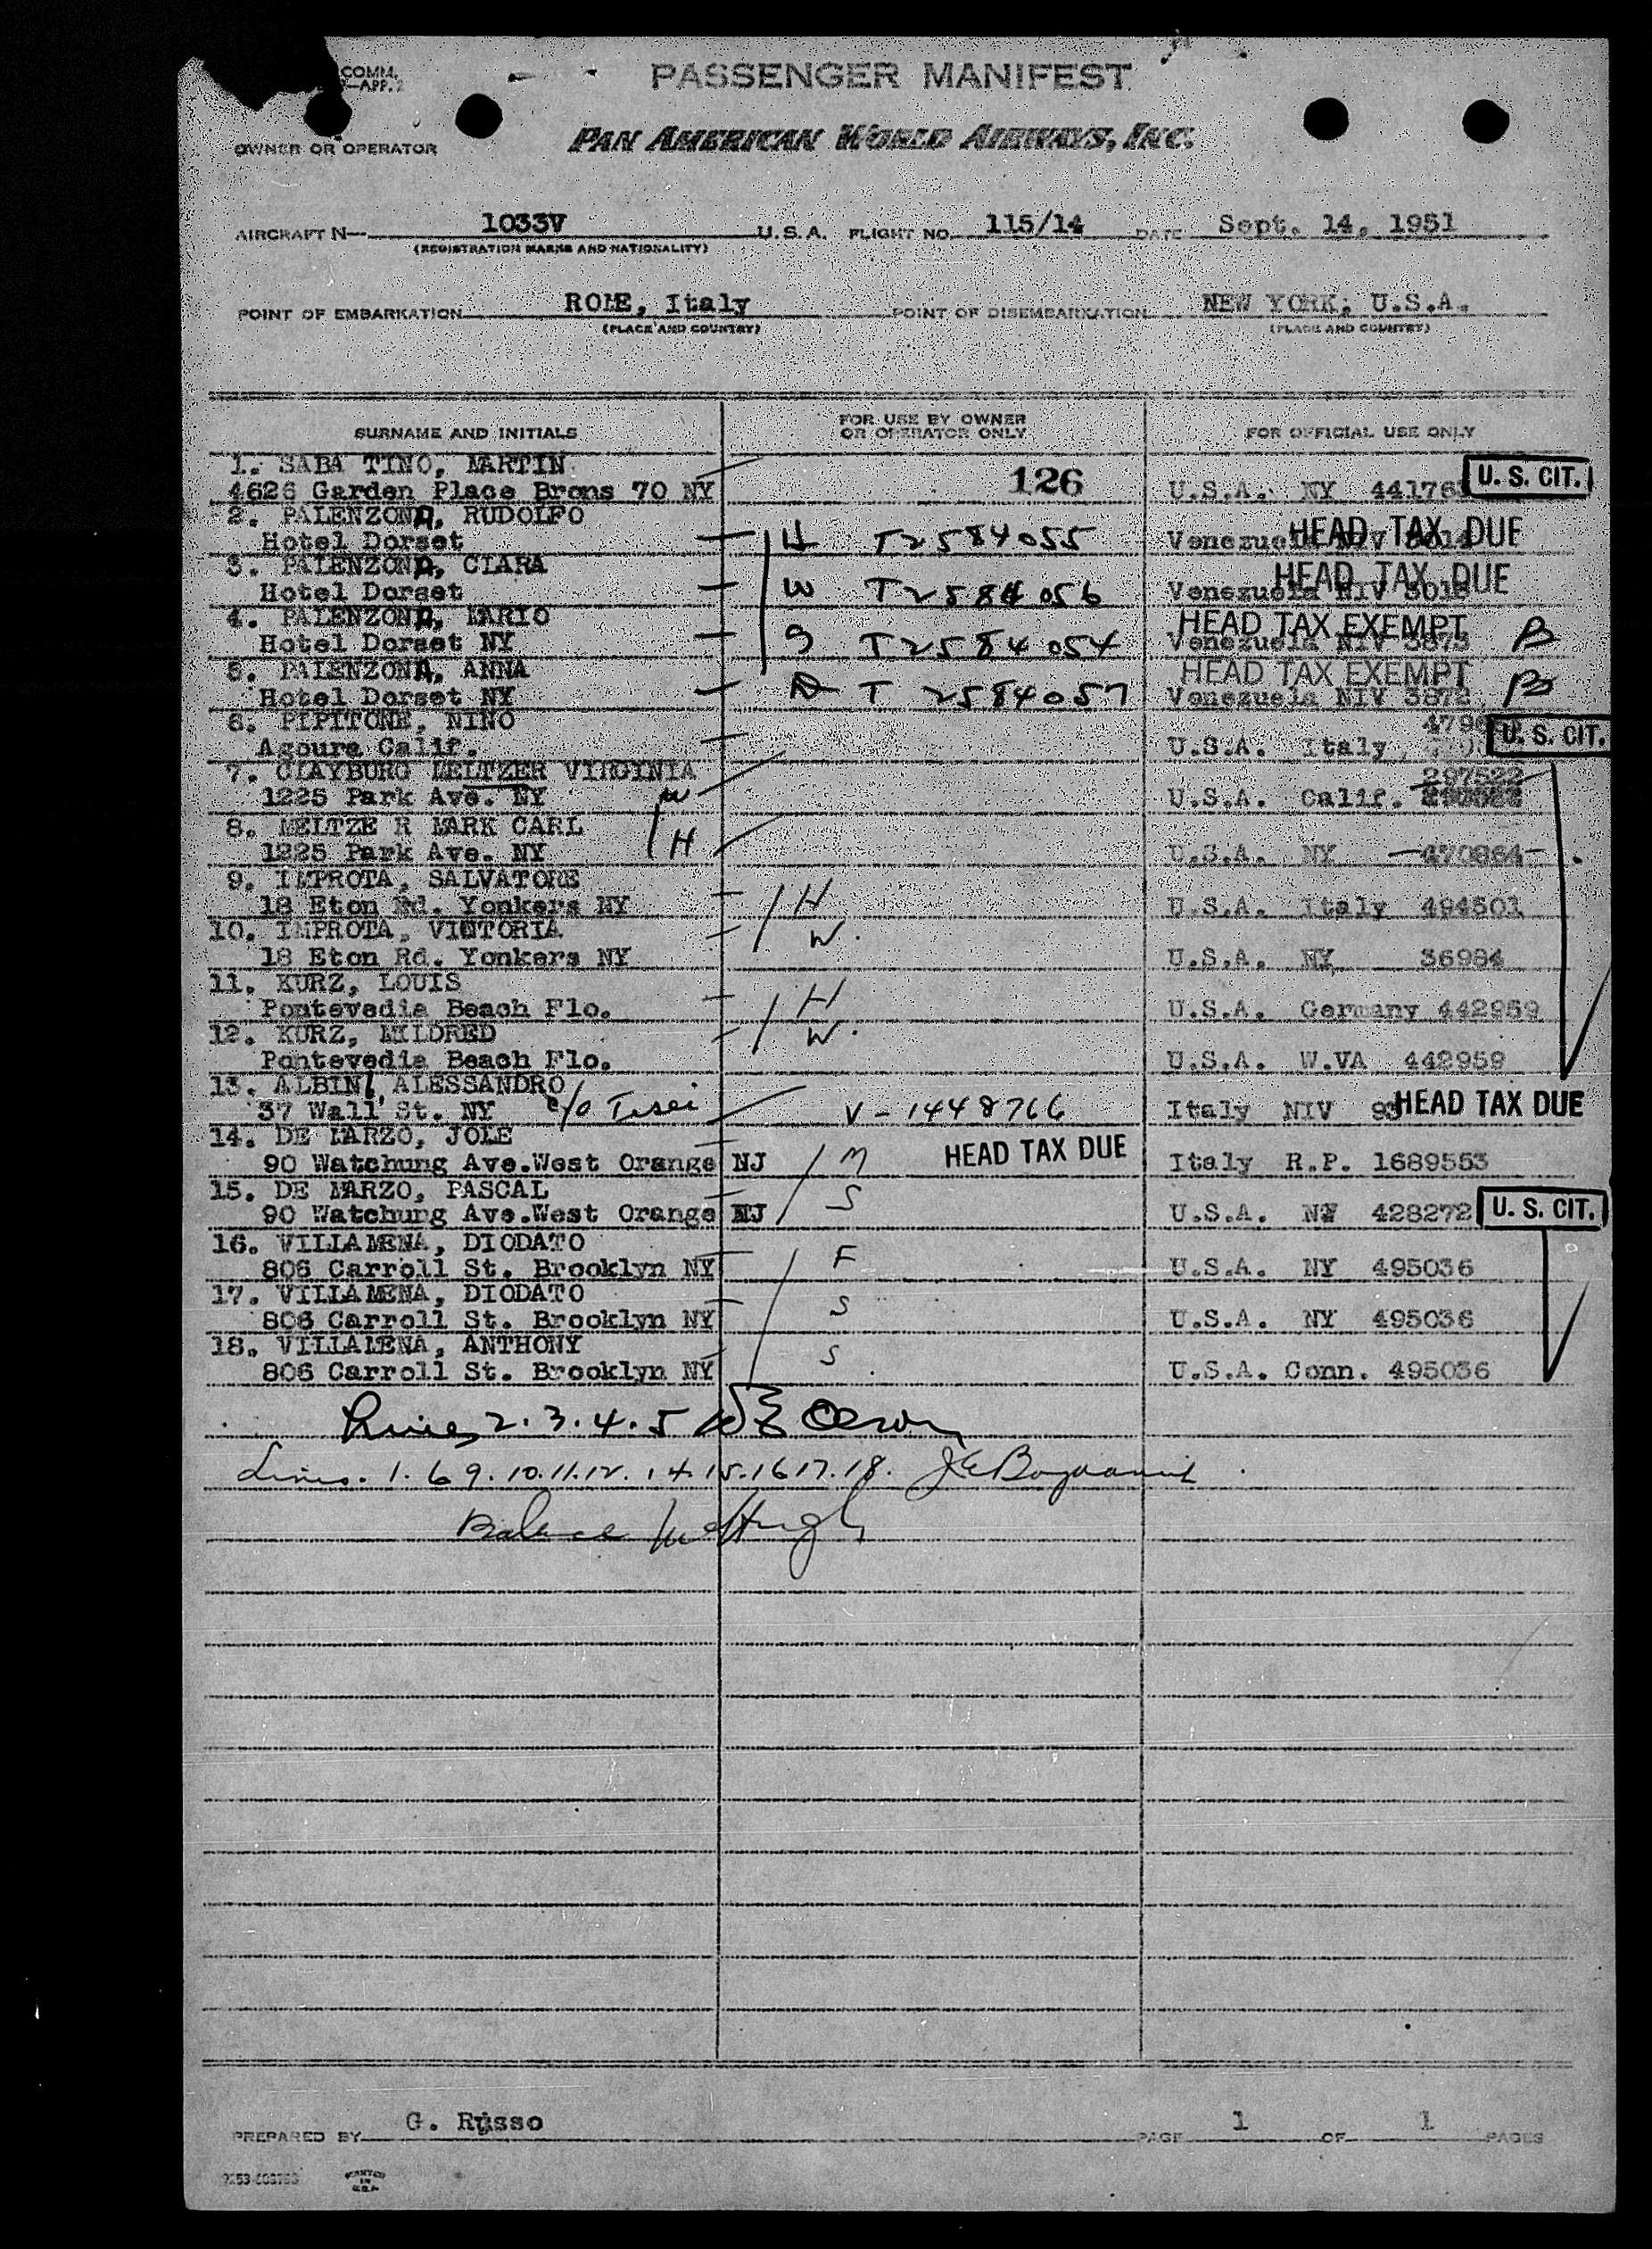 COMM.
—APP. 2
PASSENGER MANIFEST
OWNER OR OPERATOR PAN AMERICAN WORLD AIRWAYS, INC.
AIRCRAFT N— 1033V U.S.A. FLIGHT NO. 115/14 DATE Sept. 14, 1951
(REGISTRATION MARKS AND NATIONALITY)
POINT OF EMBARKATION ROME, Italy POINT OF DISEMBARKATION NEW YORK, U.S.A.
(PLACE AND COUNTRY) (PLACE AND COUNTRY)
SURNAME AND INITIALS FOR USE BY OWNER OR OPERATOR ONLY FOR OFFICIAL USE ONLY
1. SABA TINO, MARTIN
4626 Garden Place Brons 70 NY 126 U.S.A. NY U. S. CIT.
2. PALENZONA, RUDOLFO
Hotel Dorset H T2584055 Venezuela NIV HEAD TAX DUE
3. PALENZONA, CLARA
Hotel Dorset W T2584056 Venezuela NIV HEAD TAX DUE
4. PALENZONA, MARIO
Hotel Dorset NY S T2584054 Venezuela NIV 3873 HEAD TAX EXEMPT B
5. PALENZONA, ANNA
Hotel Dorset NY D T 2584057 Venezuela NIV 3872 HEAD TAX EXEMPT B
6. PIPITONE, NINO
Agoura Calif. U.S.A. Italy U. S. CIT.
7. CLAYBURG MELTZER VIRGINIA 297522
1225 Park Ave. NY W U.S.A. Calif.
8. MELTZE R MARK CARL
1225 Park Ave. NY H U.S.A. NY 470864
9. IMPROTA, SALVATORE
18 Eton Rd. Yonkers NY H U.S.A. Italy 494501
10. IMPROTA, VICTORIA
18 Eton Rd. Yonkers NY W. U.S.A. NY 36984
11. KURZ, LOUIS
Pontevedia Beach Flo. H U.S.A. Germany 442959
12. KURZ, MILDRED
Pontevedia Beach Flo. W. U.S.A. W.VA 442959
13. ALBINI, ALESSANDRO
37 Wall St. NY c/o Tesei V-1448766 Italy NIV HEAD TAX DUE
14. DE MARZO, JOLE
90 Watchung Ave.West Orange NJ M HEAD TAX DUE Italy R.P. 1689553
15. DE MARZO, PASCAL
90 Watchung Ave.West Orange NJ S U.S.A. 428272 U. S. CIT.
16. VILLAMENA, DIODATO
806 Carroll St. Brooklyn NY F U.S.A. NY 495036
17. VILLAMENA, DIODATO
806 Carroll St. Brooklyn NY S U.S.A. NY 495036
18. VILLAMENA, ANTHONY
806 Carroll St. Brooklyn NY S U.S.A. Conn. 495036
Lines 2.3.4.5
Lines. 1. 6 9. 10. 11. 12. 14. 15. 16 17. 18.
Balance McHugh
PREPARED BY G. Russo PAGE 1 OF 1 PAGES
PRINTED
IN
U.S.A.